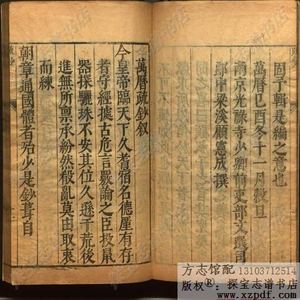 固子輯是編之意也
萬曆己酉冬十一月穀旦
南京光祿寺少卿前吏部文選司
郎中梁溪顧憲成撰
萬曆疏鈔叙
今皇帝臨天下久耆宿名德厪有存
據古危言論之臣投鼠
器探驪珠不安其位久遜于荒後
進無所稟承紛然殽亂莫由取衷
而練
朝章通國體者殆少是鈔
方志馆配 13103712514
版权®：探宝志谱书店
www.xzpdf.com